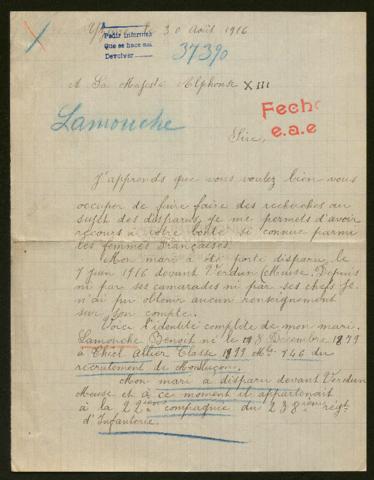 30 Août 1916
Pedir informes
Que se hace cau
Devolver
37390
A Sa Majesté Alphonse XIII
Fecho
e.a.e
Lamouche
Sire,
J'apprends que vous voulez bien vous
occuper de faire faire des recherches au
sujet des disparus, je me permets d'avoir
recours à votre bonté si connue parmi
les femmes Françaises.
Mon mari a été porté disparu le
7 juin 1916 devant Verdun (Meuse). Depuis
ni par ses camarades ni par ses chefs je
n'ai pu obtenir aucun renseignement
sur son compte.
Voici l'identité complète de mon mari.
Lamouche Benoît né le 18 Décembre 1879
à Thiel Allier Classe 1899 Mle 746 du
recrutement de Montluçon.
Mon mari a disparu devant Verdun
Meuse et à ce moment il appartenait
à la 22ième compagnie du 238ième régt
d'Infanterie.